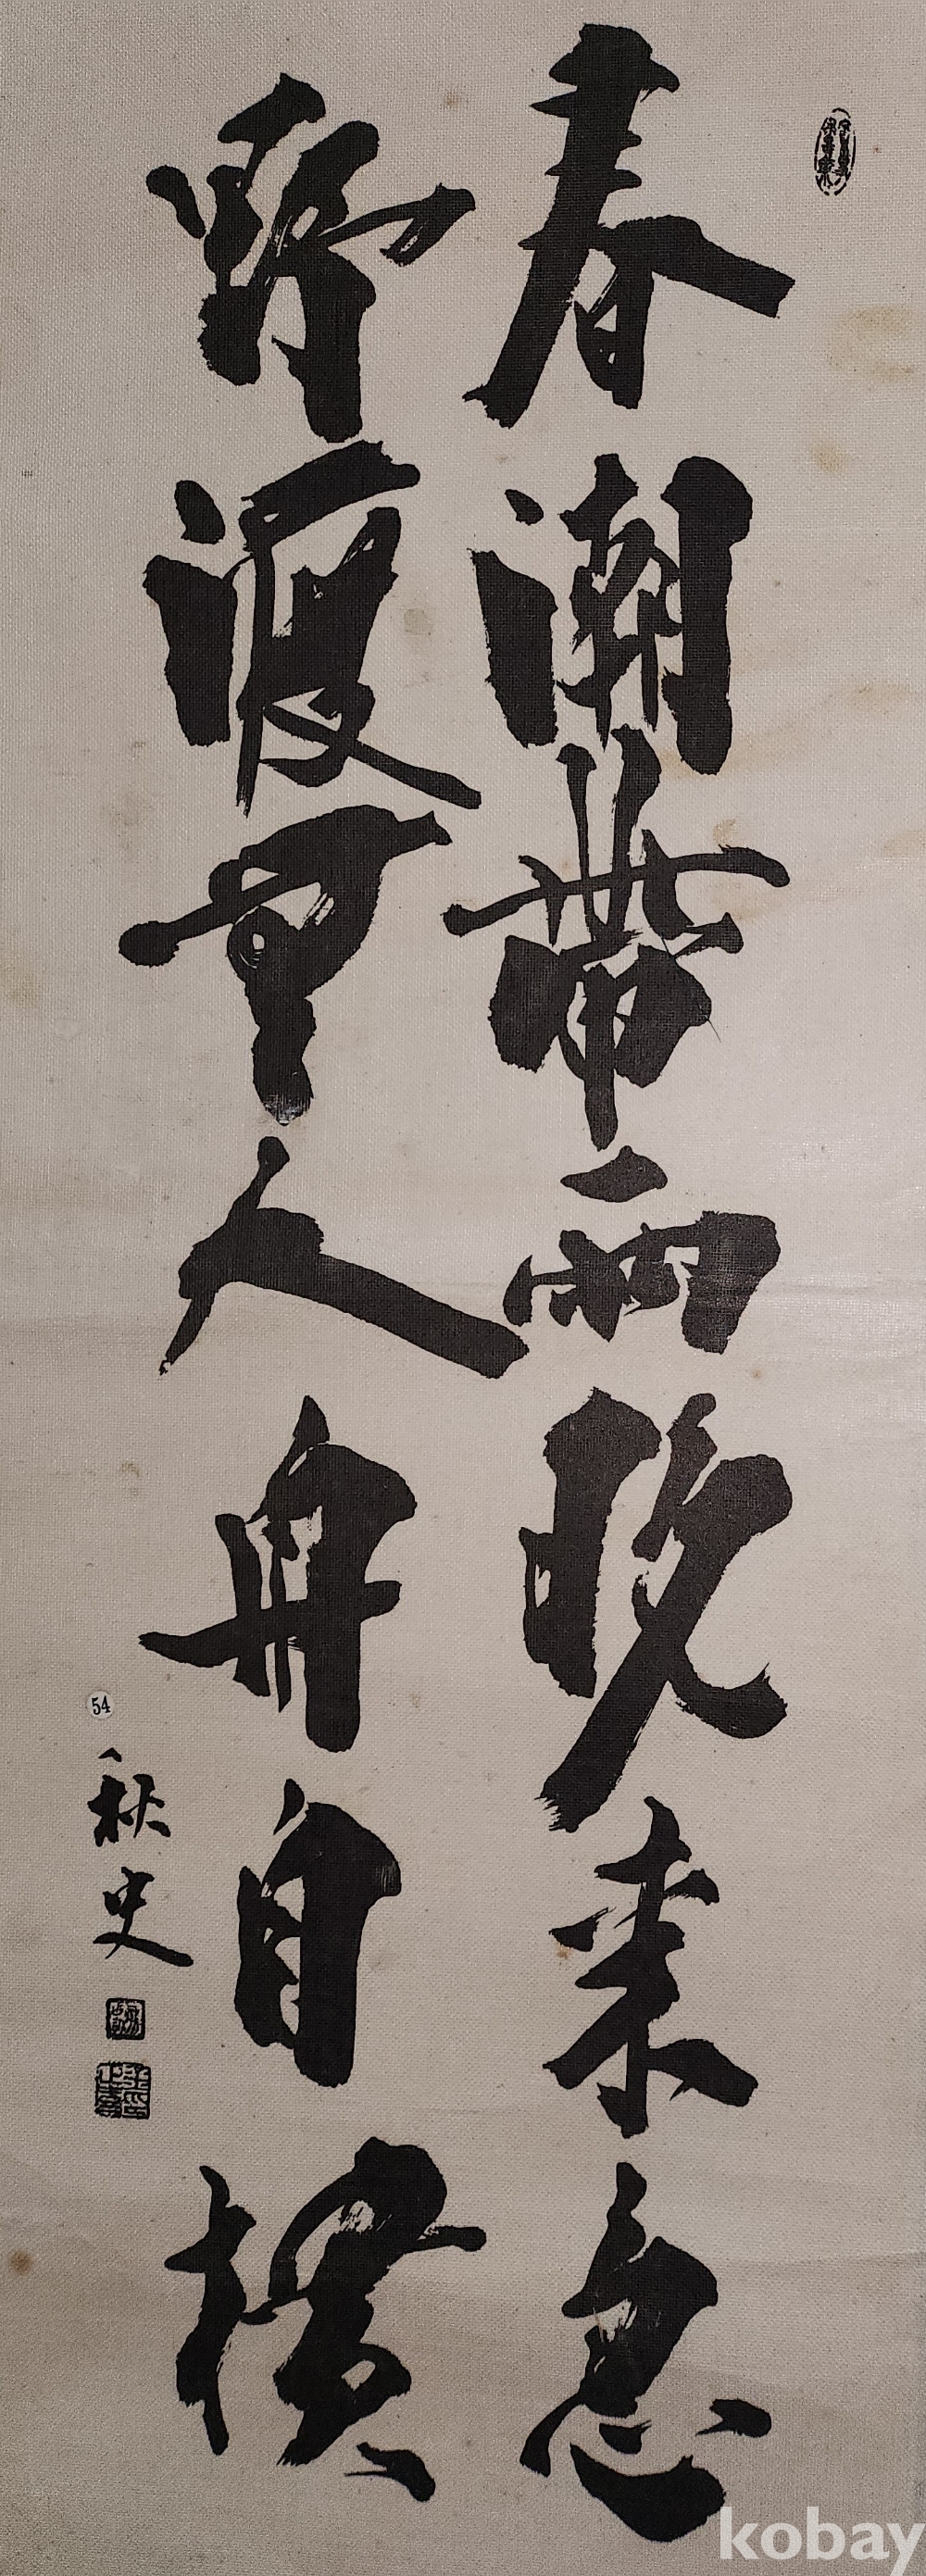 春潮帶雨晚來急
野渡無人舟自橫
秋史
54
kobay